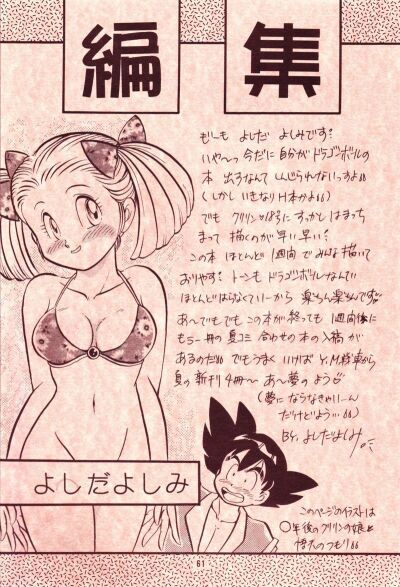 編集
もしーも よしだ よしみです?
いや〜っ 今だに自分がドラゴンボールの
本 出すなんて しんじられないっすよ
(しかし いきなりH本かよ)
でも クリリン♡18号にすっかしはまっち
まって 描くのが早い早い?
この本 ほとんど1週間でみんな描いて
おりやす? トーンもドラゴンボールなんで
ほとんどはらなくていーから 楽ちん楽ちんです
あ〜でもでも この本が終っても 1週間後に
もう一冊の夏コミ合わせの本の入稿が
あるのだ でもうまくいけばY.M.
夏の新刊4冊〜 あ〜夢のよう
(夢にならなきゃいーん
だけどよう…)
BY. よしだよしみ
よしだよしみ
このページのイラストは
〇年後のクリリンの娘と
悟天のつもり
61